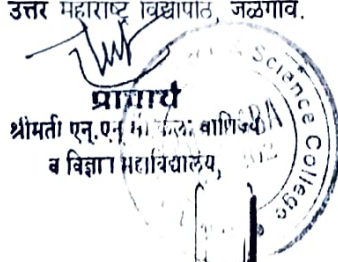 उत्तर महाराष्ट्र विद्यापीठ, जळगाव.
प्राचार्य
श्रीमती एन.एन. कला वाणिज्य
व विज्ञान महाविद्यालय,
& Science College